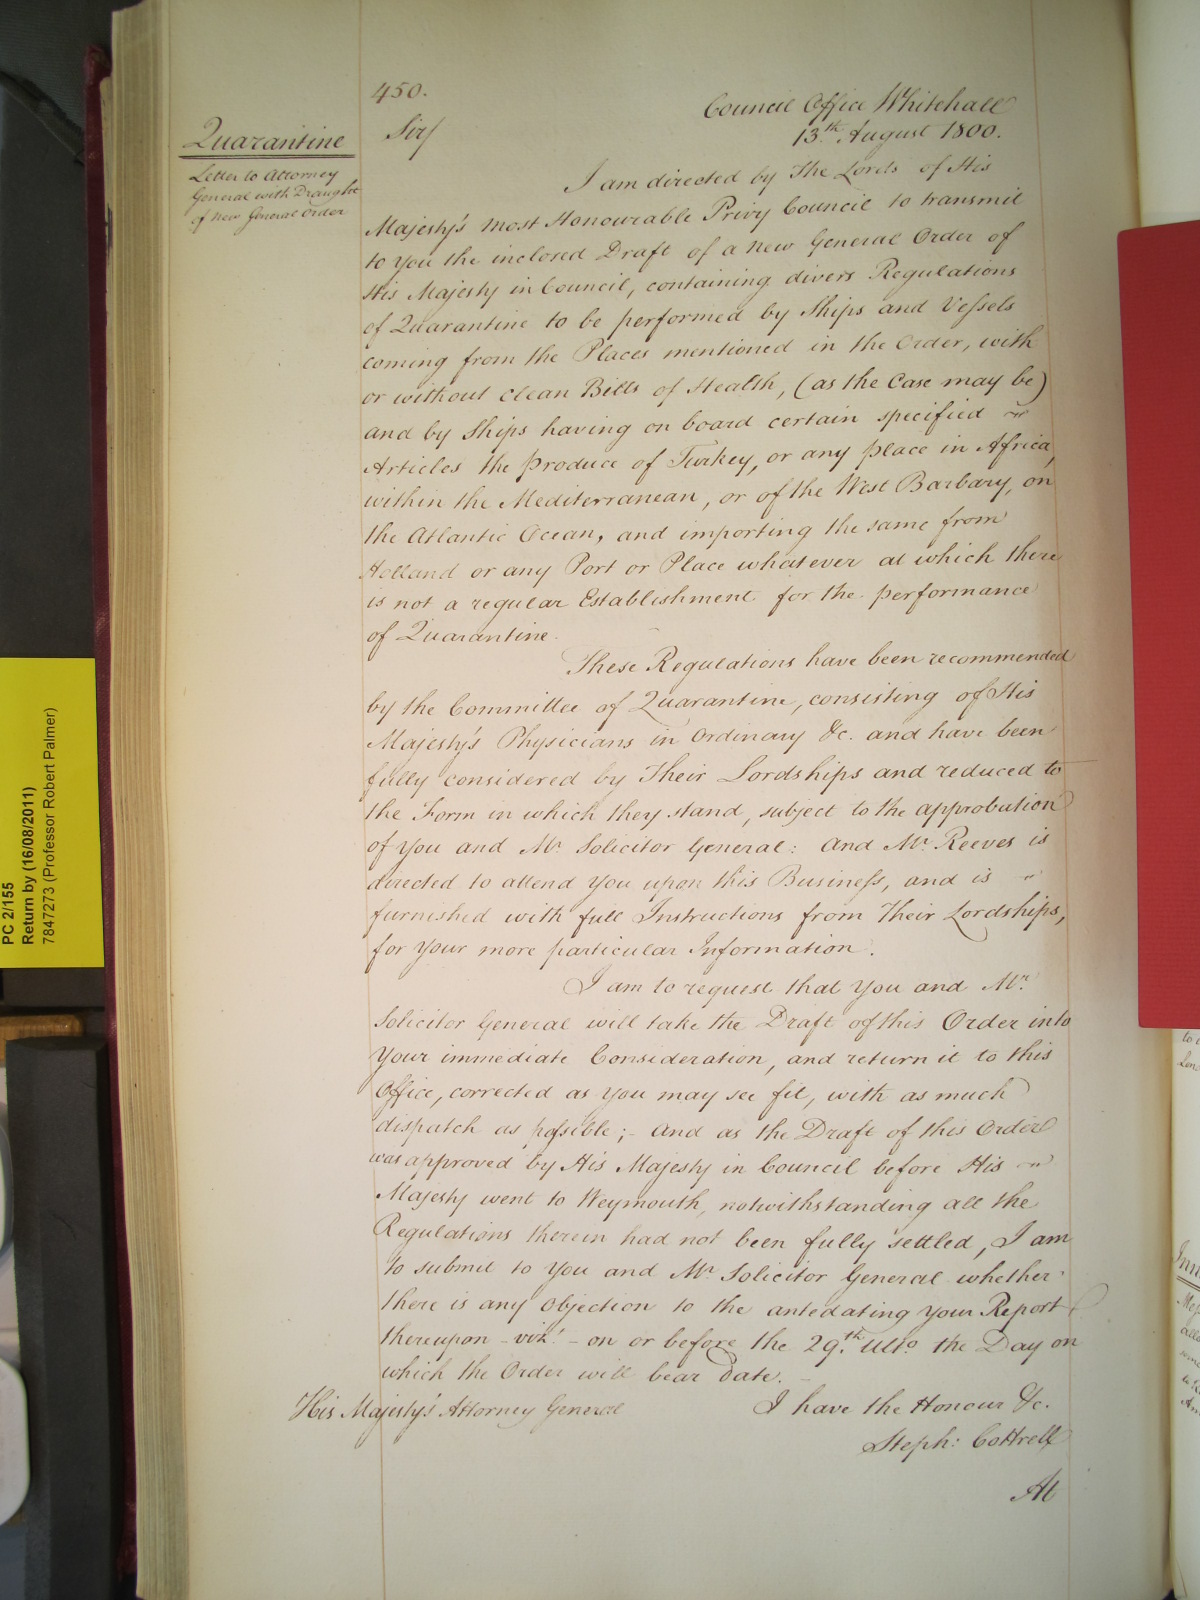 450.
Council Office Whitehall
Sir/
13.th August 1800.
Quarantine
Letter to Attorney
General with Draught
of new General Order
I am directed by The Lords of His
Majesty's most Honourable Privy Council to transmit
to You the inclosed Draft of a new General Order of
His Majesty in Council, containing divers Regulations
of Quarantine to be performed by Ships and Vessels
coming from the Places mentioned in the Order, with
or without clean Bills of Health, (as the Case may be)
and by Ships having on board certain specified
Articles the produce of Turkey, or any place in Africa,
within the Mediterranean, or of the West Barbary, on
the Atlantic Ocean, and importing the same from
Holland or any Port or Place whatever at which there
is not a regular Establishment for the performance
of Quarantine.
These Regulations have been recommended
by the Committee of Quarantine, consisting of His
Majesty's Physicians in Ordinary &c. and have been
fully considered by Their Lordships and reduced to
the Form in which they stand, subject to the approbation
of You and Mr. Solicitor General: And Mr. Reeves is
directed to attend You upon this Business, and is
furnished with full Instructions from Their Lordships,
for Your more particular Information.
I am to request that You and Mr.
Solicitor General will take the Draft of this Order into
Your immediate Consideration, and return it to this
Office, corrected as You may see fit, with as much
dispatch as possible;- And as the Draft of this Order
was approved by His Majesty in Council before His
Majesty went to Weymouth, notwithstanding all the
Regulations therein had not been fully settled, I am
to submit to You and Mr. Solicitor General whether
there is any Objection to the antedating Your Report
thereupon - vizt. - on or before the 29.th Ulto. the Day on
which the Order will bear Date.
His Majesty's Attorney General
I have the Honour &c.
Steph: Cottrell
At
PC 2/155
Return by (16/08/2011)
7847273 (Professor Robert Palmer)